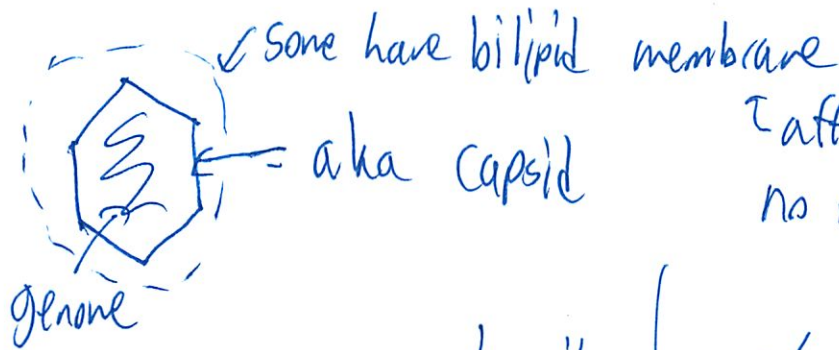 some have bilipid membrane
aka capsid
no
genome